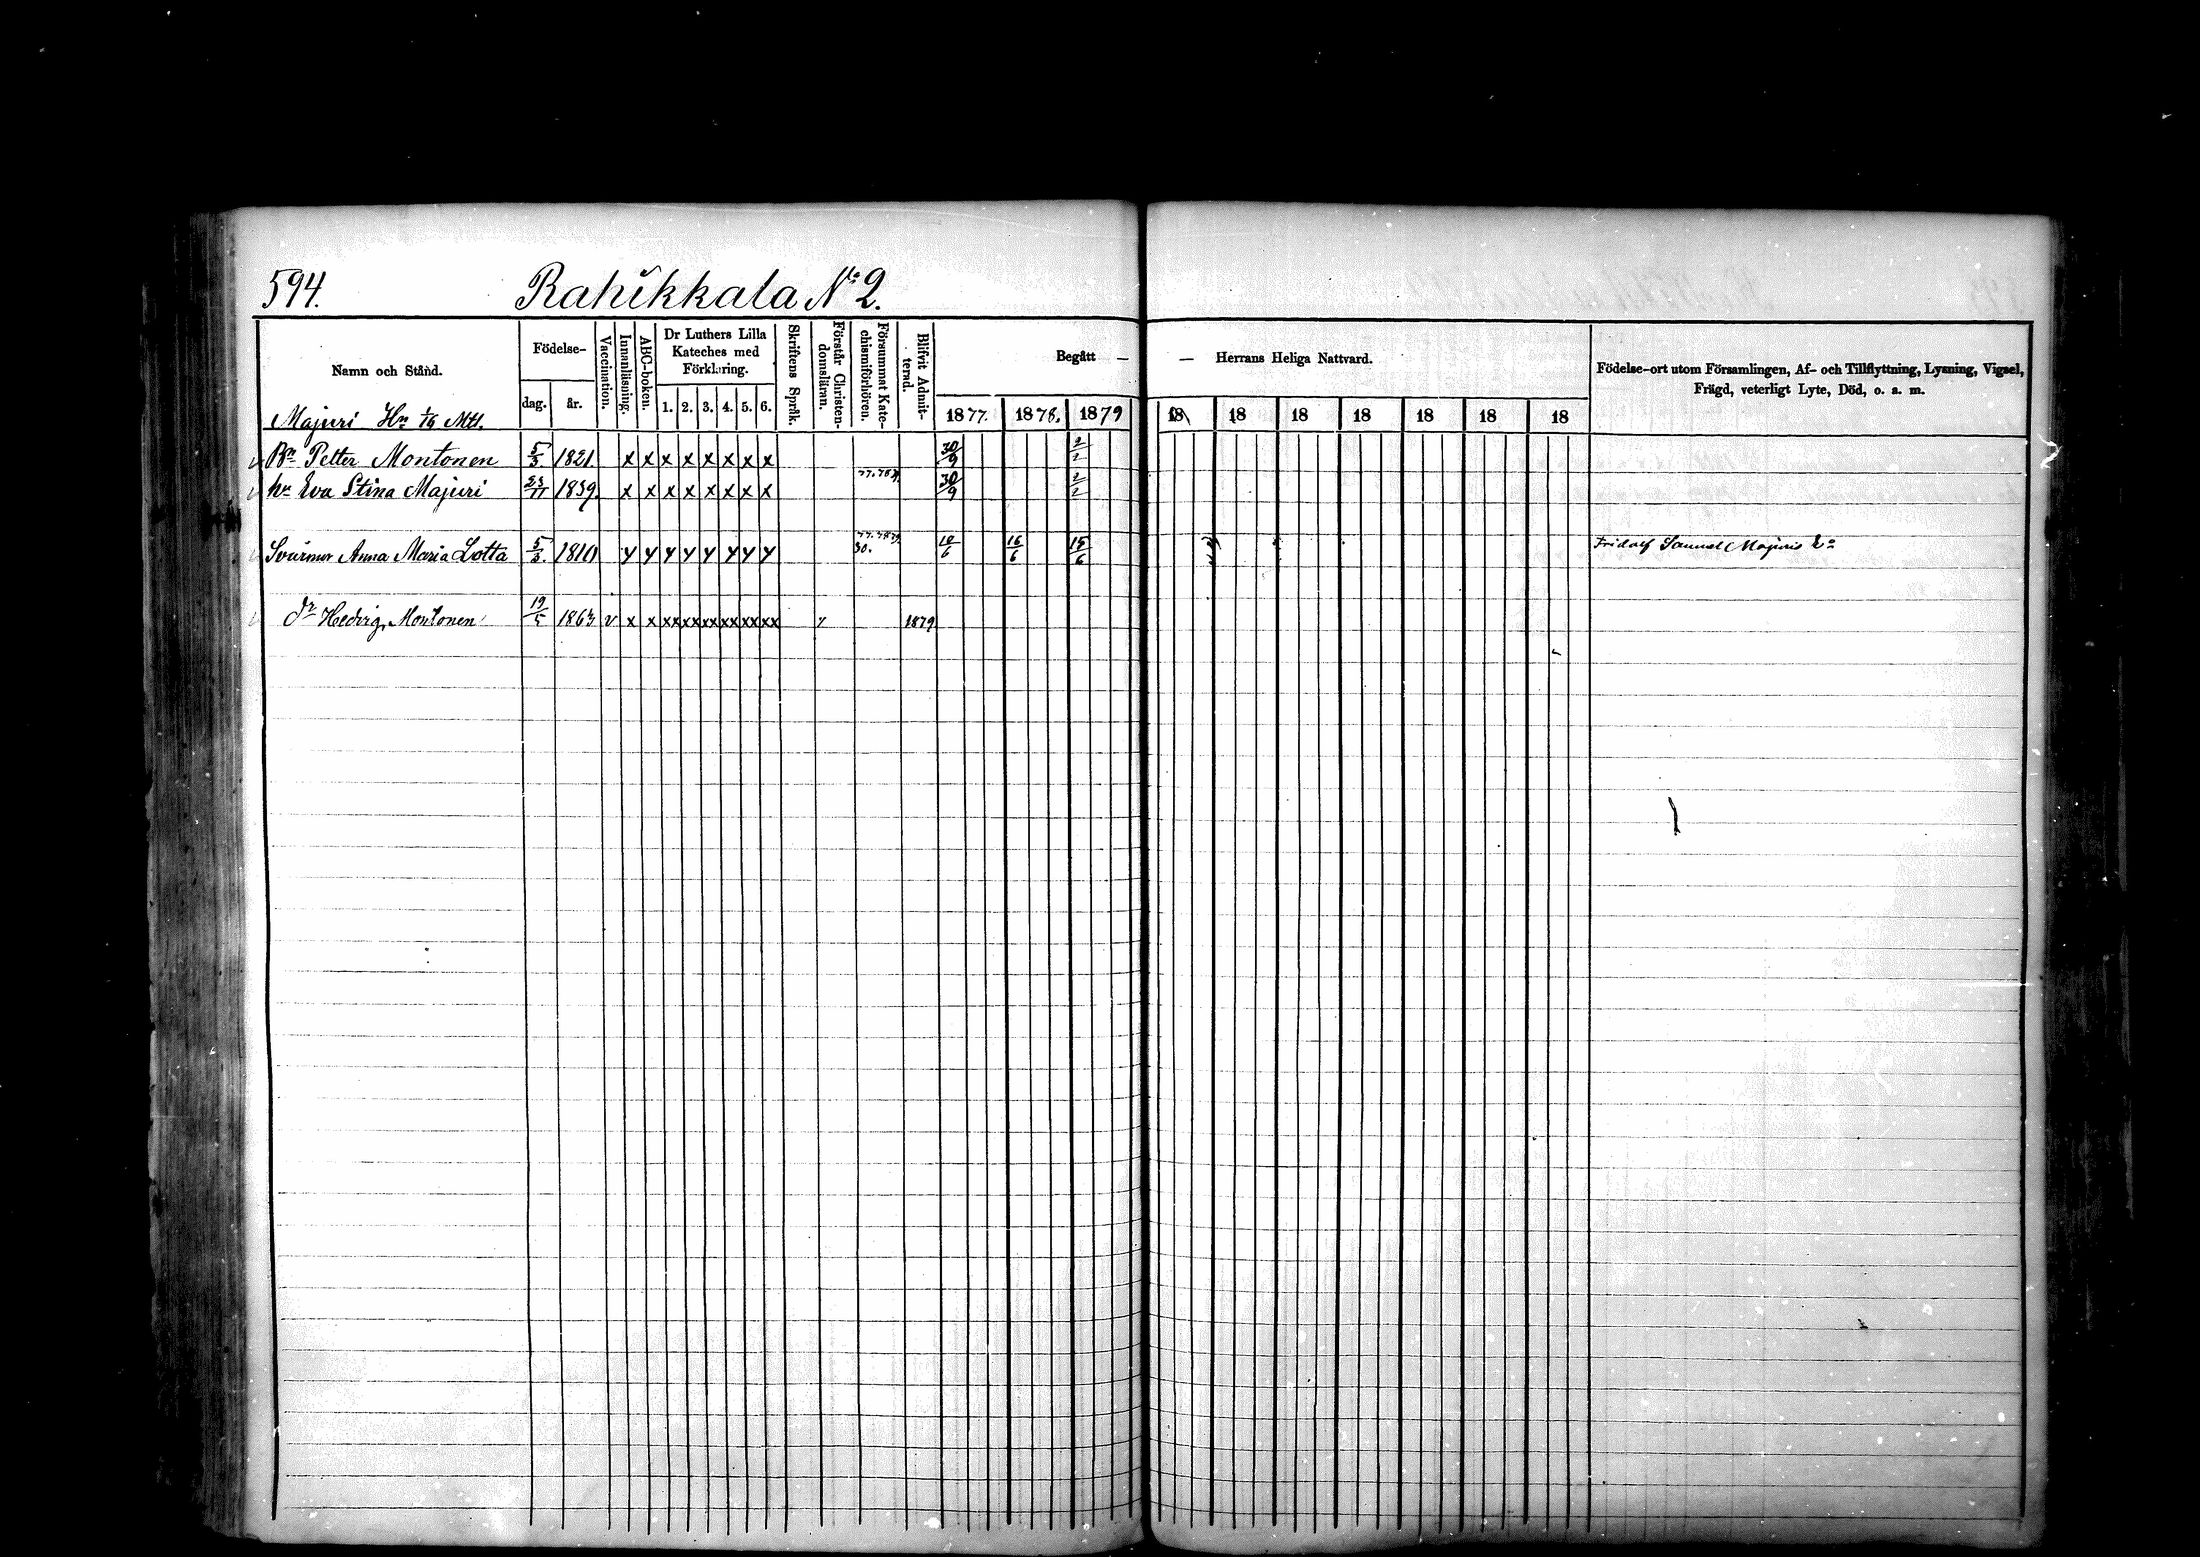 594. Rahikkala No 2.
Namn och Stånd. Födelse- dag. år. Vaccination. Innanläsning. ABC-boken. Dr Luthers Lilla Kateches med Förklaring. 1. 2. 3. 4. 5. 6. Skriftens Språk. Förstår Christendomsläran. Försummat Katechismiförhören. Blifvit Admitterad. Begått — — Herrans Heliga Nattvard. Födelse-ort utom Församlingen, Af- och Tillflyttning, Lysning, Vigsel, Frägd, veterligt Lyte, Död, o. a. m.
1877. 1878. 1879 18 18 18 18 18 18 18
Majuri Hn 1/6 Mtl.
Bn Petter Montonen 5/3 1821 x x x x x x x x 30/9 2/2
hu Eva Stina Majuri 23/11 1839 x x x x x x x x 77.78.79. 30/9 2/2
Svärmor Anna Maria Lotta 5/3. 1810 y y y y y y y y 77.78.79. 80. 10/6 16/6 15/6 Fridolf Samuel Majuris
dr Hedvig Montonen 19/5 1863 v x x xx xx xx xx xx xx y 1879